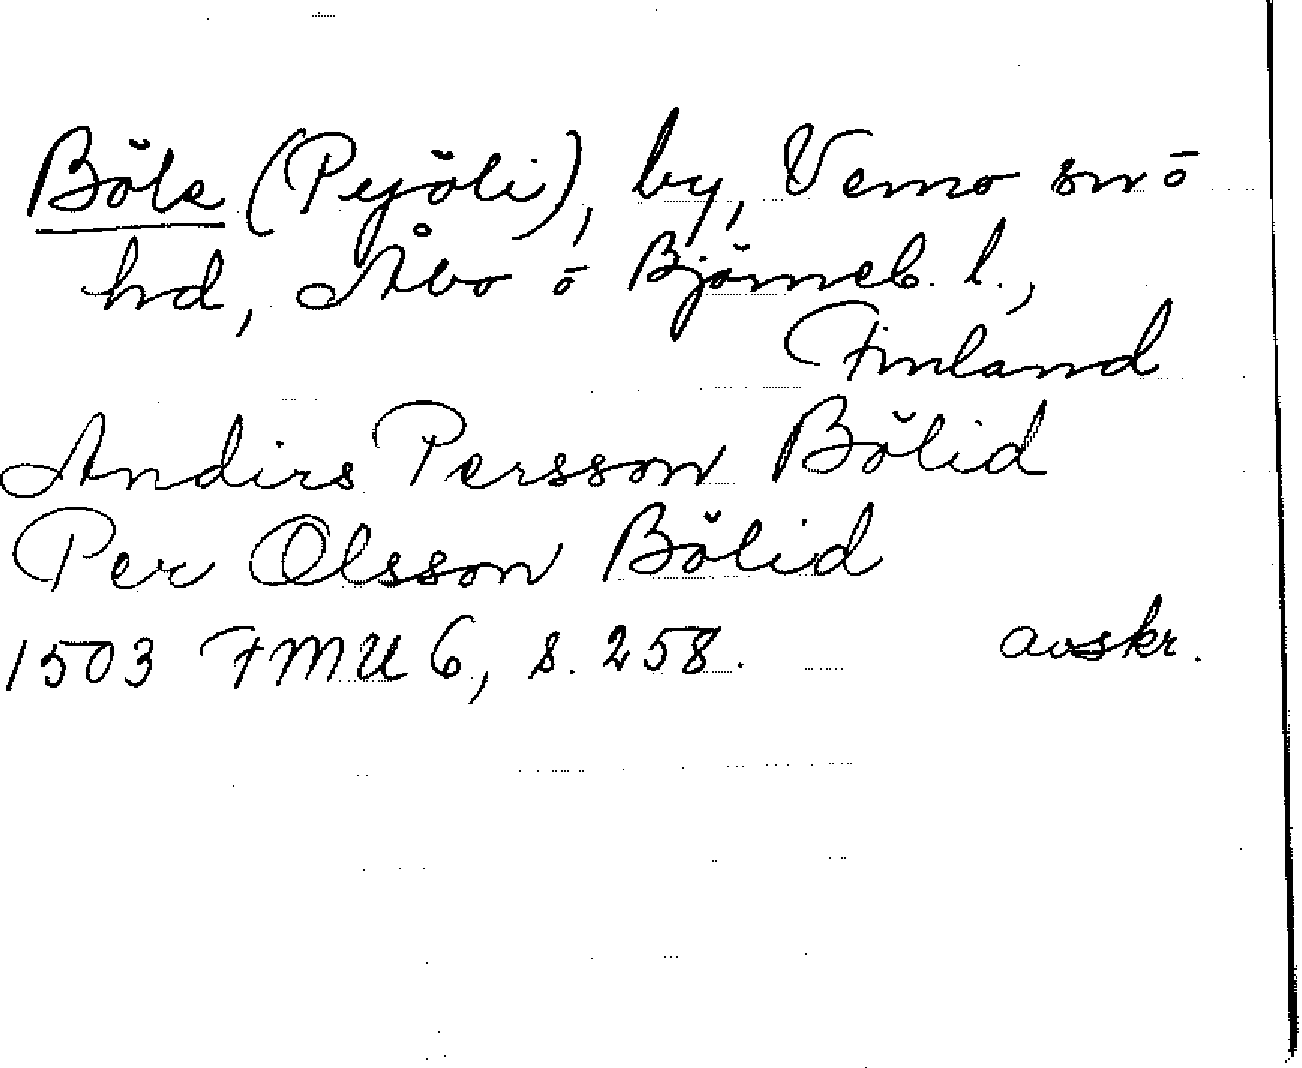 Böle (Pyöli), by, Vemo sn o
hd, Åbo o Björneb. l.,
Finland
Anders Persson Bölid
Per Olsson Bölid
1503 FMU 6, s. 258. avskr.